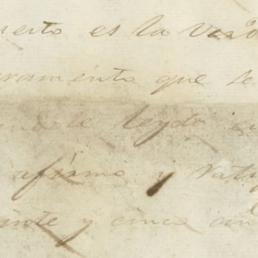 uesto es la verd
uramento que se
endole leydo
afirmo y rati
einte y cinco añ